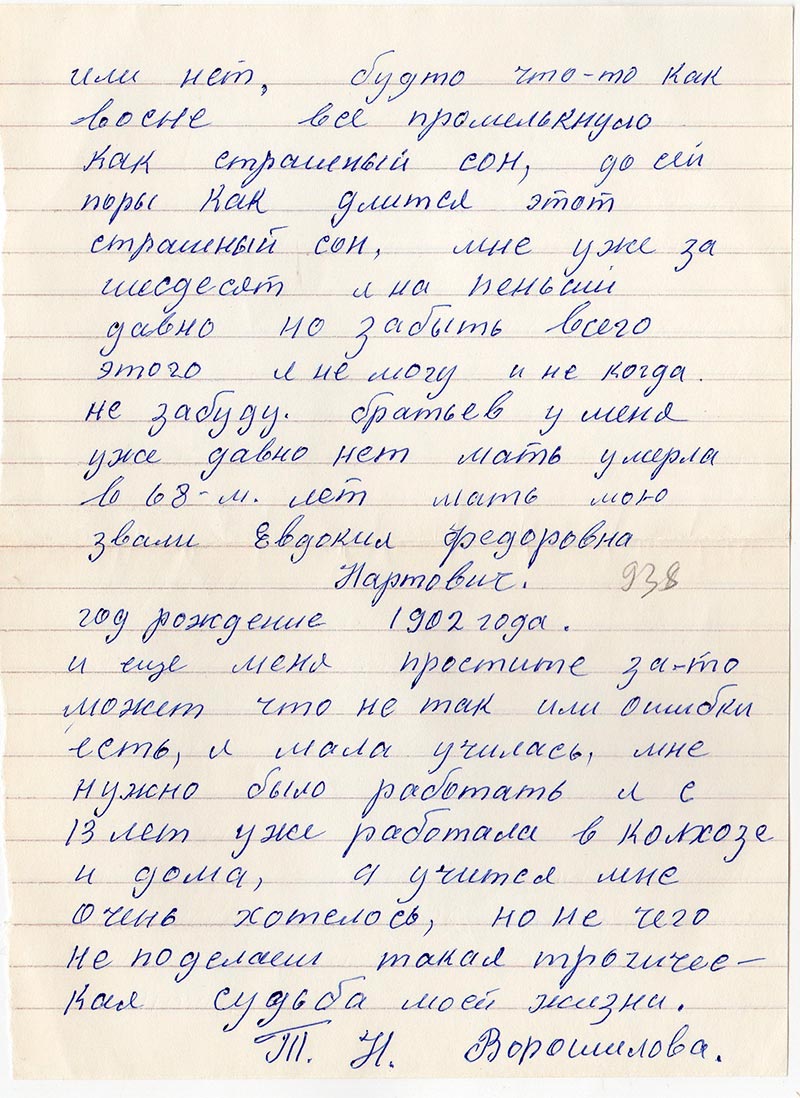 или нет, будто что-то как
восне все промелькнуло
как страшный сон, до сей
поры как длится этот
страшный сон, мне уже за
шесдесят я на пеньсии
давно но забыть всего
этого я не могу и не когда.
не забуду. братьев у меня
уже давно нет мать умерла
в 68-м. лет мать мою
звали Евдокия Федоровна
Нартович. 938
год рождение 1902 года.
и еще меня простите за-то
может что не так или ошибки
есть, я мала училась, мне
нужно было работать я с
13 лет уже работала в колхозе
и дома, а учится мне
очень хотелось, но не чего
не поделаеш такая трогичес-
кая судьба моей жизни.
Т. Н. Ворошилова.